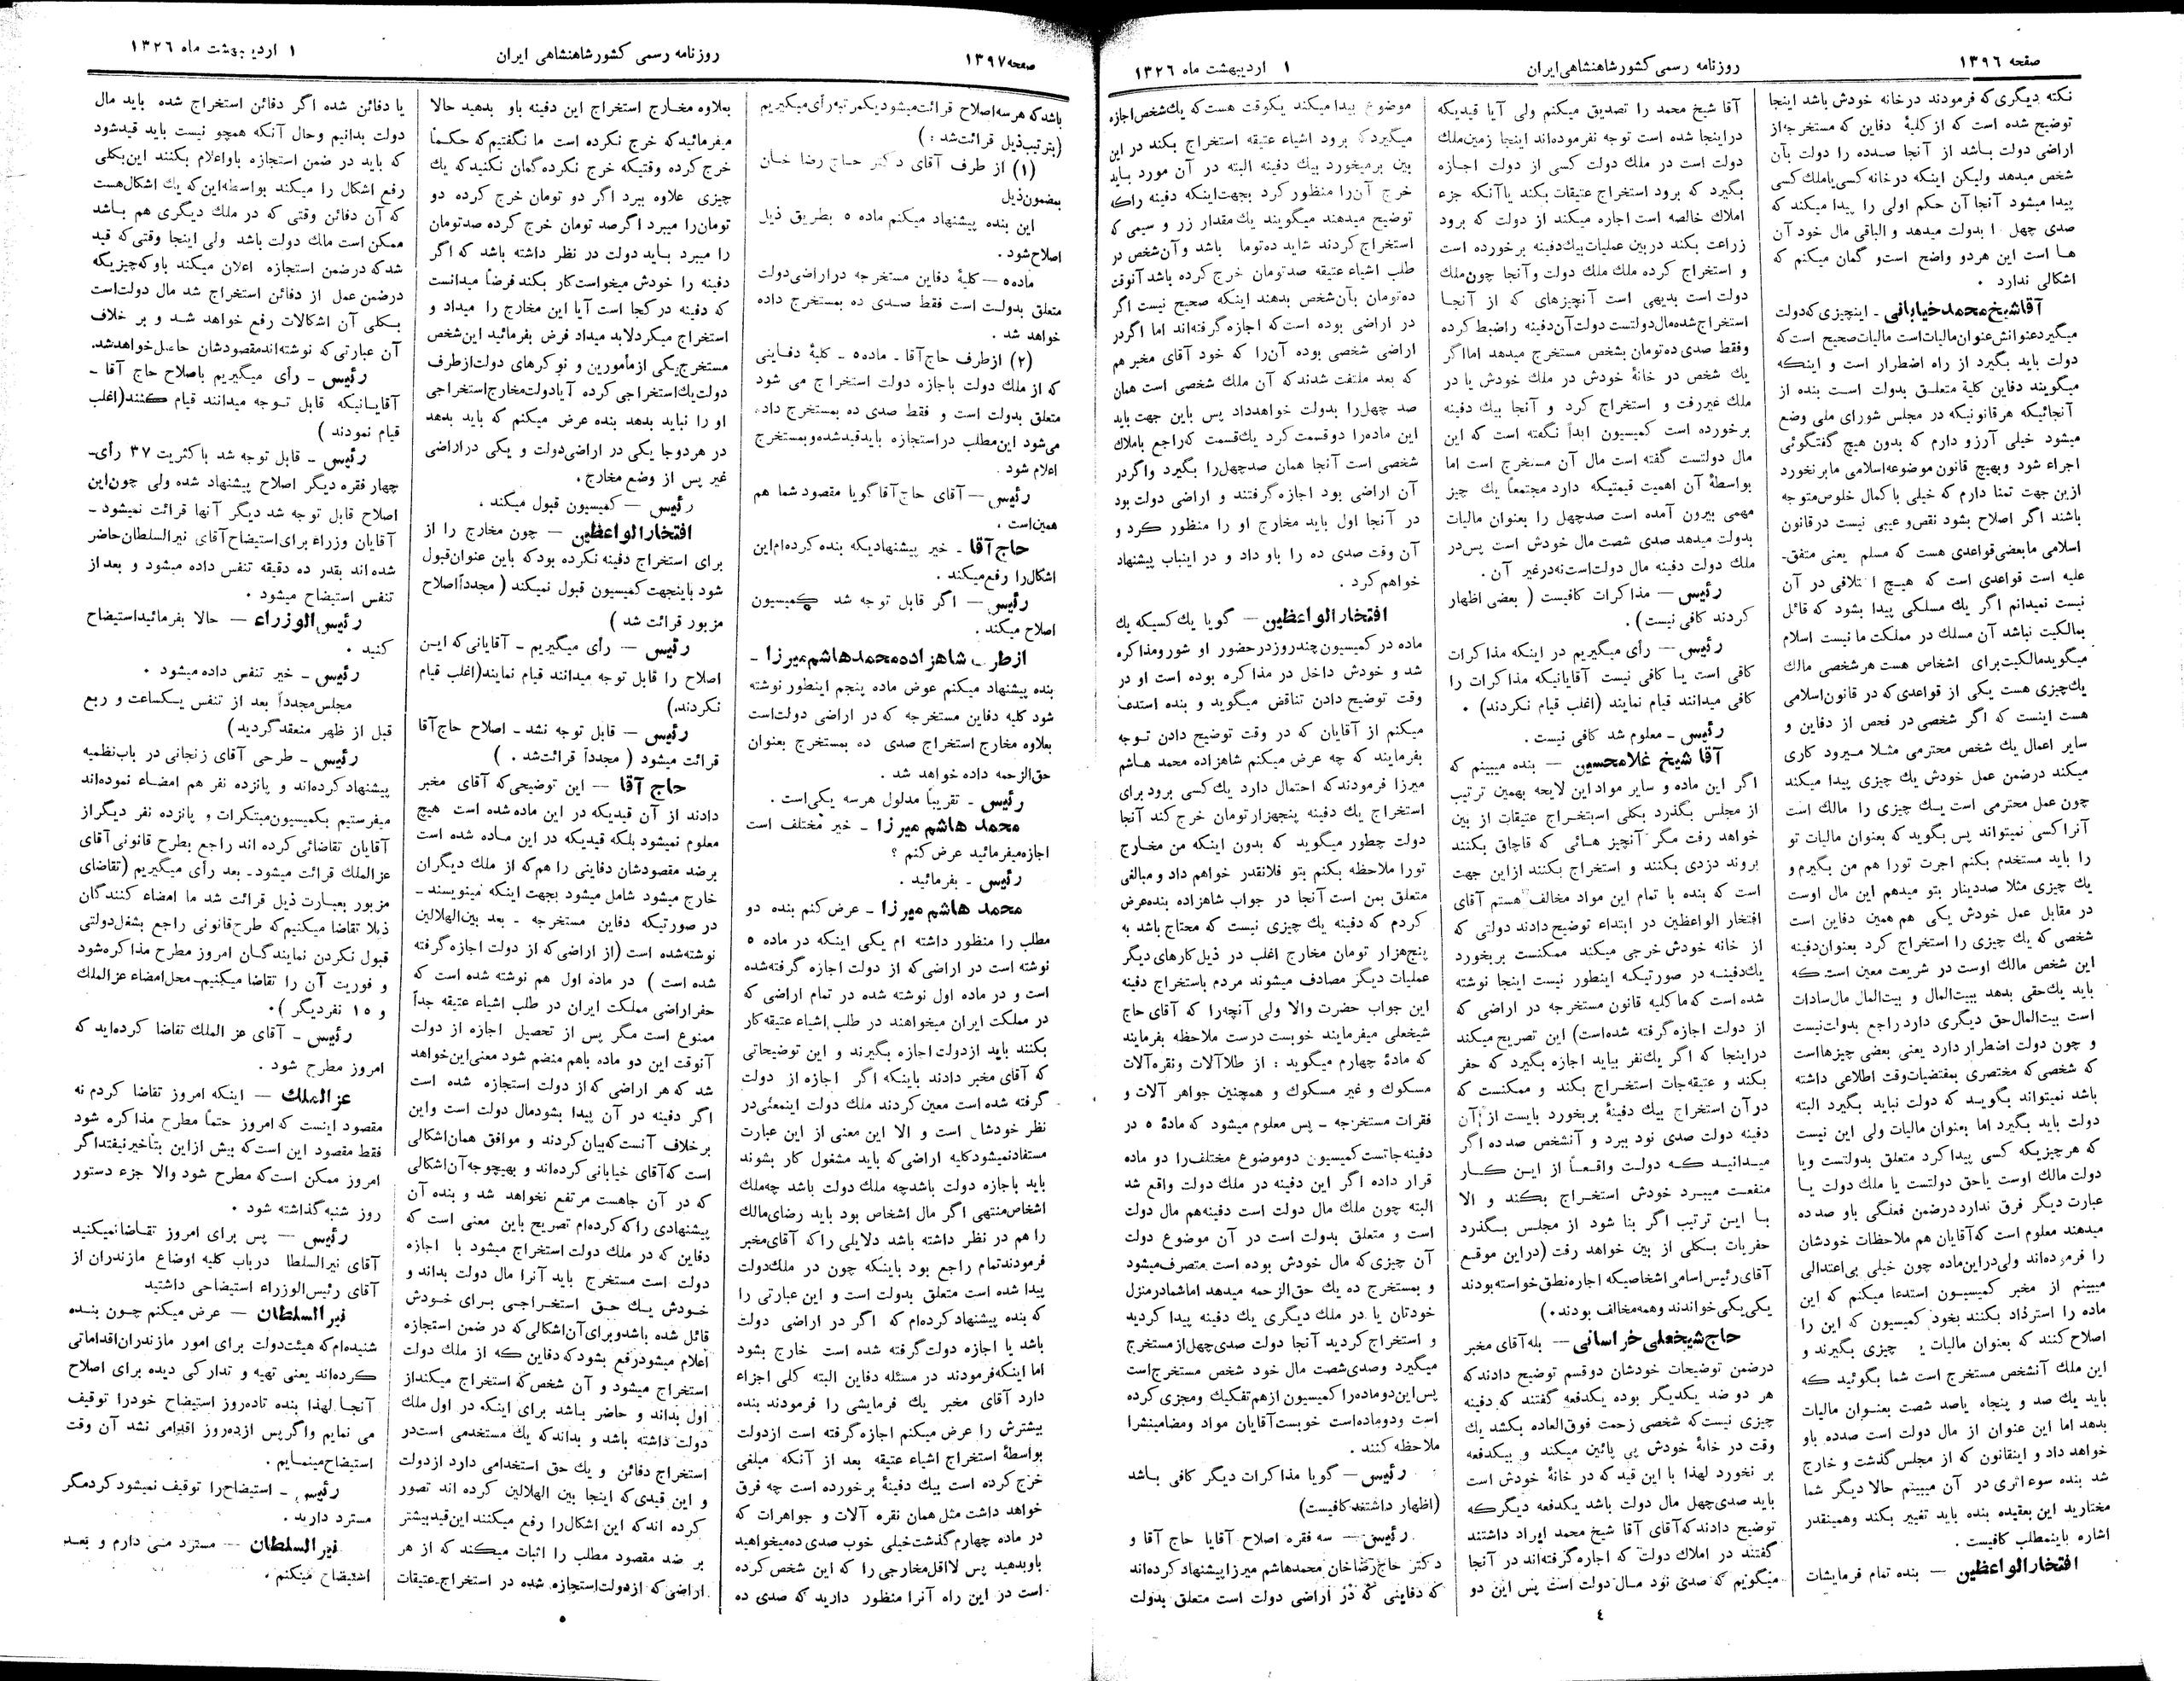 صفحه ۱۳۹٦
روزنامه رسمی کشور شاهنشاهی ایران
۱ اردیبهشت ماه ۱۳۲٦
نکته دیگری که فرمودند در خانه خودش باشد اینجا
توضیح شده است که از کلیهٔ دفاین که مستخرجه از
اراضی دولت باشد از آنجا صدده را دولت بآن
شخص میدهد ولیکن اینکه در خانه کسی یا ملك کسی
پیدا میشود آنجا آن حکم اولی را پیدا میکند که
صدی چهل را بدولت میدهد و الباقی مال خود آن
هـا است این هر دو واضح است و گمان میکنم که
اشکالی ندارد .
آقا شیخ محمد خیابانی ـ اینچیزی که دولت
میگیرد عنوانش عنوان مالیات است مالیات صحیح است که
دولت باید بگیرد از راه اضطرار است و اینکه
میگویند دفاین کلیهٔ متعلق بدولت است بنده از
آنجائیکه هر قانونیکه در مجلس شورای ملی وضع
میشود خیلی آرزو دارم که بدون هیچ گفتگوئی
اجراء شود وبهیچ قانون موضوعه اسلامی ما برنخورد
ازین جهت تمنا دارم که خیلی با کمال خلوص متوجه
باشند اگر اصلاح بشود نقص و عیبی نیست در قانون
اسلامی ما بعضی قواعدی هست که مسلم یعنی متفق‌ـ
علیه است قواعدی است که هیـچ اختلافی در آن
نیست نمیدانم اگر یك مسلکی پیدا بشود که قائل
بمالکیت نباشد آن مسلك در مملکت ما نیست اسلام
میگوید مالکیت برای اشخاص هست هر شخصی مالك
یك چیزی هست یکی از قواعدی که در قانون اسلامی
هست اینست که اگر شخصی در فحص از دفاین و
سایر اعمال یك شخص محترمی مثلا میرود کاری
میکند درضمن عمل خودش یك چیزی پیدا میکند
چون عمل محترمی است یـك چیزی را مالك است
آنرا کسی نمیتواند پس بگوید که بعنوان مالیات تو
را باید مستخدم بکنم اجرت تورا هم من بگیرم و
یك چیزی مثلا صددینار بتو میدهم این مال اوست
در مقابل عمل خودش یکی هم همین دفاین است
شخصی که یك چیزی را استخراج کرد بعنوان دفینه
این شخص مالك اوست در شریعت معین است که
باید یك حقی بدهد ببیت‌المال و بیت‌المال مال سادات
است بیت‌المال حق دیگری دارد راجع بدولت نیست
و چون دولت اضطرار دارد یعنی بعضی چیزها است
که شخصی که مختصری بمقتضیات وقت اطلاعی داشته
باشد نمیتواند بگوید که دولت نباید بگیرد البته
دولت باید بگیرد اما بعنوان مالیات ولی این نیست
که هر چیزیکه کسی پیدا کرد متعلق بدولتست ویا
دولت مالك اوست یا حق دولتست یا ملك دولت یـا
عبارت دیگر فرق ندارد درضمن فعلگی باو صدده
میدهند معلوم است که آقایان هم ملاحظات خودشان
را فرموده‌اند ولی در این ماده چون خیلی بی‌اعتدالی
میبینم از مخبر کمیسیون استدعا میکنم که این
ماده را استرداد بکنند بخود کمیسیون که این را
اصلاح کنند که بعنوان مالیات چیزی بگیرند و
این ملك آنشخص مستخرج است شما بگوئید که
باید یك صد و پنجاه یا صد شصت بعنـوان مالیات
بدهد اما این عنوان از مال دولت است صدده باو
خواهد داد و اینقانون که از مجلس گذشت و خارج
شد بنده سوء اثری در آن میبینم حالا دیگر شما
مختارید این بعقیده بنده باید تغییر بکند وهمینقدر
اشاره باینمطلب کافیست .
افتخار الواعظین ـ بنده تمام فرمایشات
آقا شیخ محمد را تصدیق میکنم ولی آیا قیدیکه
دراینجا شده است توجه نفرموده‌اند اینجا زمین ملك
دولت است در ملك دولت کسی از دولت اجازه
بگیرد که برود استخراج عتیقات بکند یا آنکه جزء
املاك خالصه است اجاره میکند از دولت که برود
زراعت بکند دربین عملیات بیك دفینه برخورده است
و استخراج کرده ملك ملك دولت و آنجا چون ملك
دولت است بدیهی است آنچیزهای که از آنجـا
استخراج شده مال دولتست دولت آن دفینه راضبط کرده
وفقط صدی ده تومان بشخص مستخرج میدهد اما اگر
یك شخص در خانهٔ خودش در ملك خودش یا در
ملك غیر رفت و استخراج کرد و آنجا بیك دفینه
برخورده است کمیسیون ابداً نگفته است که این
مال دولتست گفته است مال آن مستخرج است اما
بواسطهٔ آن اهمیت قیمتیکه دارد مجتمعاً یك چیز
مهمی بیرون آمده است صد چهل را بعنوان مالیات
بدولت میدهد صدی شصت مال خودش است پس در
ملك دولت دفینه مال دولت است نه در غیر آن .
رئیس ـ مذاکرات کافیست ( بعضی اظهار
کردند کافی نیست ) .
رئیس ـ رأی میگیریم در اینکه مذاکرات
کافی است یـا کافی نیست آقایانیکه مذاکرات را
کافی میدانند قیام نمایند (اغلب قیام نکردند) .
رئیس ـ معلوم شد کافی نیست .
آقا شیخ غلامحسین ـ بنده میبینم که
اگر این ماده و سایر مواد این لایحه بهمین ترتیب
از مجلس بگذرد بکلی استخـراج عتیقات از بین
خواهد رفت مگر آنچیز هـائی که قاچاق بکنند
بروند دزدی بکنند و استخراج بکنند از این جهت
است که بنده با تمام این مواد مخالف هستم آقای
افتخار الواعظین در ابتداء توضیح دادند دولتی که
از خانه خودش خرجی میکند ممکنست بربخورد
یك دفینـه در صورتیکه اینطور نیست اینجا نوشته
شده است که ما کلیه قانون مستخرجه در اراضی که
از دولت اجازه گرفته شده است) این تصریح میکند
در اینجا که اگر یك نفر بیاید اجازه بگیرد که حفر
بکند و عتیقه‌جات استخـراج بکند و ممکنست که
در آن استخراج بیك دفینهٔ بربخورد بایست از آن
دفینه دولت صدی نود ببرد و آنشخص صد ده اگر
میـدانیـد کـه دولت واقعـاً از ایـن کـار
منفعت میبـرد خودش استخـراج بکند و الا
بـا ایـن ترتیب اگر بنا شود از مجلس بـگذرد
حفریات بـکلی از بین خواهد رفت (در این موقع
آقای رئیس اسامی اشخاصیکه اجازه نطق خواسته بودند
یکی یکی خواندند وهمه مخالف بودند.)
حاج شیخعلی خراسانی ـ بله آقای مخبر
درضمن توضیحات خودشان دوقسم توضیح دادند که
هر دو ضد یکدیگر بوده یکدفعه گفتند که دفینه
چیزی نیست که شخصی زحمت فوق‌العاده بکشد یك
وقت در خانهٔ خودش پی پائین میکند و بیکدفعه
بر نخورد لهذا با این قید که در خانهٔ خودش است
باید صدی چهل مال دولت باشد یکدفعه دیگر که
توضیح دادند که آقای آقا شیخ محمد ایراد داشتند
گفتند در املاك دولت که اجاره گرفته‌اند در آنجا
میگویم که صدی نود مـال دولت است پس این دو
موضوع پیدا میکند یکوقت هست که یك شخص اجازه
میگیرد که برود اشیاء عتیقه استخراج بکند در این
بین برمیخورد بیك دفینه البته در آن مورد بـاید
خرج آن را منظور کرد بجهت اینکه دفینه را که
توضیح میدهند میگویند یك مقدار زر و سیمی که
استخراج کردند شاید ده توما باشد و آن شخص در
طلب اشیاء عتیقه صد تومان خرج کرده باشد آنوقت
ده تومان بآن شخص بدهند اینکه صحیح نیست اگر
در اراضی بوده است که اجازه گرفته‌اند اما اگر در
اراضی شخصی بوده آن را که خود آقای مخبر هم
که بعد ملتفت شدند که آن ملك شخصی است همان
صد چهل را بدولت خواهد داد پس باین جهت باید
این ماده را دو قسمت کرد یك قسمت که راجع باملاك
شخصی است آنجا همان صد چهل را بگیرد واگر در
آن اراضی بود اجازه گرفتند و اراضی دولت بود
در آنجا اول باید مخارج او را منظور کرد و
آن وقت صدی ده را باو داد و در اینباب پیشنهاد
خواهم کرد .
افتخار الواعظین ـ گویا یك کسیکه یك
ماده در کمیسیون چند روز در حضور او شور و مذاکره
شد و خودش داخل در مذاکره بوده است او در
وقت توضیح دادن تناقض میگوید و بنده استدعا
میکنم از آقایان که در وقت توضیح دادن تـوجه
بفرمایند که چه عرض میکنم شاهزاده محمد هـاشم
میرزا فرمودند که احتمال دارد یك کسی برود برای
استخراج یك دفینه پنجهزار تومان خرج کند آنجا
دولت چطور میگوید که بدون اینکه من مخـارج
تورا ملاحظه بکنم بتو فلانقدر خواهم داد و مبالغی
متعلق بمن است آنجا در جواب شاهزاده بنده عرض
کردم که دفینه یك چیزی نیست که محتاج باشد به
پنج‌هزار تومان مخارج اغلب در ذیل کارهای دیگر
عملیات دیگر مصادف میشوند مردم باستخراج دفینه
این جواب حضرت والا ولی آنچه را که آقای حاج
شیخعلی میفرمایند خوبست درست ملاحظه بفرمایند
که مادهٔ چهارم میگوید : از طلا آلات ونقره آلات
مسکوك و غیر مسکوك و همچنین جواهر آلات و
فقرات مستخرجه ـ پس معلوم میشود که مادهٔ ۵ در
دفینه جاتست کمیسیون دو موضوع مختلف را دو ماده
قرار داده اگر این دفینه در ملك دولت واقع شد
البته چون ملك مال دولت است دفینه هم مال دولت
است و متعلق بدولت است در آن موضوع دولت
آن چیزی که مال خودش بوده است متصرف میشود
و بمستخرج ده یك حق‌الزحمه میدهد اما شما در منزل
خودتان یا در ملك دیگری یك دفینه پیدا کردید
و استخراج کردید آنجا دولت صدی چهل از مستخرج
میگیرد وصدی شصت مال خود شخص مستخرج است
پس این دو ماده را کمیسیون از هم تفکیك ومجزی کرده
است ودو ماده است خوبست آقایان مواد ومضامینشرا
ملاحظه کنند .
رئیس ـ گویا مذاکرات دیگر کافی بـاشد
(اظهار داشتند کافیست)
رئیس ـ سه فقره اصلاح آقایا حاج آقا و
دکتر حاج رضاخان محمد هاشم میرزا پیشنهاد کرده‌اند
که دفاینی که در اراضی دولت است متعلق بدولت
٤
صفحه ۱۳۹۷
روزنامه رسمی کشور شاهنشاهی ایران
۱ اردیبهشت ماه ۱۳۲٦
باشد که هر سه اصلاح قرائت میشود یکمرتبه رأی میگیریم
(بترتیب ذیل قرائت شد : )
(۱) از طرف آقای دکتر حـاج رضا خـان
بمضمون ذیل
این بنده پیشنهاد میکنم ماده ۵ بطریق ذیل
اصلاح شود .
ماده ۵ ـ کلیهٔ دفاین مستخرجه در اراضی دولت
متعلق بدولت است فقط صـدی ده بمستخرج داده
خواهد شد .
(۲) از طرف حاج آقا ـ ماده ۵ ـ کلیهٔ دفـاینی
که از ملك دولت با جازه دولت استخراج می شود
متعلق بدولت است و فقط صدی ده بمستخرج داده
می‌شود این مطلب در استجازه باید قید شده و بمستخرج
اعلام شود .
رئیس ـ آقای حاج آقا گویا مقصود شما هم
همین است .
حاج آقا ـ خیر پیشنهادیکه بنده کرده‌ام این
اشکال را رفع میکند .
رئیس ـ اگر قابل توجه شد کمیسیون
اصلاح میکند .
از طرف شاهزاده محمد هاشم میرزا ـ
بنده پیشنهاد میکنم عوض ماده پنجم اینطور نوشته
شود کلیه دفاین مستخرجه که در اراضی دولت است
بعلاوه مخارج استخراج صدی ده بمستخرج بعنوان
حق‌الزحمه داده خواهد شد .
رئیس ـ تقریباً مدلول هر سه یکی است .
محمد هاشم میرزا ـ خیر مختلف است
اجازه میفرمائید عرض کنم ؟
رئیس ـ بفرمائید .
محمد هاشم میرزا ـ عرض کنم بنده دو
مطلب را منظور داشته ام یکی اینکه در ماده ۵
نوشته است در اراضی که از دولت اجازه گرفته شده
است و در ماده اول نوشته شده در تمام اراضی که
در مملکت ایران میخواهند در طلب اشیاء عتیقه کار
بکنند باید از دولت اجازه بگیرند و این توضیحاتی
که آقای مخبر دادند باینکه اگر اجازه از دولت
گرفته شده است معین کردند ملك دولت اینمعنی در
نظر خودشان است و الا این معنی از این عبارت
مستفاد نمیشود کلیه اراضی که باید مشغول کار بشوند
باید باجازه دولت باشد چه ملك دولت باشد چه ملك
اشخاص منتهی اگر مال اشخاص بود باید رضای مالك
را هم در نظر داشته باشد دلایلی را که آقای مخبر
فرمودند تمام راجع بود باینکه چون در ملك دولت
پیدا شده است متعلق بدولت است و این عبارتی را
که بنده پیشنهاد کرده‌ام که اگر در اراضی دولت
باشد یا اجازه دولت گرفته شده است خارج بشود
اما اینکه فرمودند در مسئله دفاین البته کلی اجزاء
دارد آقای مخبر یك فرمایشی را فرمودند بنده
بیشترش را عرض میکنم اجازه گرفته است از دولت
بواسطهٔ استخراج اشیاء عتیقه بعد از آنکه مبلغی
خرج کرده است بیك دفینهٔ برخورده است چه فرق
خواهد داشت مثل همان نقره آلات و جواهرات که
در ماده چهارم گذشت خیلی خوب صدی ده میخواهید
باو بدهید پس لااقل مخارجی را که این شخص کرده
است در این راه آنرا منظور دارید که صدی ده
بعلاوه مخـارج استخراج این دفینه باو بدهید حالا
میفرمائید که خرج نکرده است ما نگفتیم که حکمـاً
خرج کرده وقتیکه خرج نکرده گمان نکنید که یك
چیزی علاوه ببرد اگر دو تومان خرج کرده دو
تومان را میبرد اگر صد تومان خرج کرده صدتومان
را میبرد بـاید دولت در نظر داشته باشد که اگر
دفینه را خودش میخواست کار بکند فرضاً میدانست
که دفینه در کجا است آیا این مخارج را میداد و
استخراج میکرد لابد میداد فرض بفرمائید این شخص
مستخرج یکی از مأمورین و نوکرهای دولت از طرف
دولت یك استخراجی کرده آیا دولت مخارج استخراجی
او را نباید بدهد بنده عرض میکنم که باید بدهد
در هر دو جا یکی در اراضی دولت و یکی در اراضی
غیر پس از وضع مخارج .
رئیس ـ کمیسیون قبول میکند .
افتخار الواعظین ـ چون مخارج را از
برای استخراج دفینه نکرده بود که باین عنوان قبول
شود باینجهت کمیسیون قبول نمیکند ( مجدداً اصلاح
مزبور قرائت شد )
رئیس ـ رأی میگیریم ـ آقایانی که ایـن
اصلاح را قابل توجه میدانند قیام نمایند (اغلب قیام
نکردند.)
رئیس ـ قابل توجه نشد ـ اصلاح حاج آقا
قرائت میشود ( مجدداً قرائت شد . )
حاج آقا ـ این توضیحی که آقای مخبر
دادند از آن قیدیکه در این ماده شده است هیچ
معلوم نمیشود بلکه قیدیکه در این مـاده شده است
برضد مقصودشان دفاینی را هم که از ملك دیگران
خارج میشود شامل میشود بجهت اینکه مینویسند ـ
در صورتیکه دفاین مستخرجه ـ بعد بین‌الهلالین
نوشته شده است (از اراضی که از دولت اجازه گرفته
شده است ) در ماده اول هم نوشته شده است که
حفر اراضی مملکت ایران در طلب اشیاء عتیقه جداً
ممنوع است مگر پس از تحصیل اجازه از دولت
آنوقت این دو ماده باهم منضم شود معنی این خواهد
شد که هر اراضی که از دولت استجازه شده است
اگر دفینه در آن پیدا بشود مال دولت است واین
برخلاف آنست که بیان کردند و موافق همان اشکالی
است که آقای خیابانی کرده‌اند و بهیچوجه آن اشکالی
که در آن جاهست مرتفع نخواهد شد و بنده آن
پیشنهادی را که کرده‌ام تصریح باین معنی است که
دفاین که در ملك دولت استخراج میشود با اجازه
دولت است مستخرج باید آنرا مال دولت بداند و
خـودش یـك حـق استخـراجـی بـرای خـودش
قائل شده باشد و برای آن اشکالی که در ضمن استجازه
اعلام میشود رفع بشود که دفاین که از ملك دولت
استخراج میشود و آن شخص که استخراج میکند از
اول بداند و حاضر باشد برای اینکه در اول ملك
دولت داشته باشد و بداند که یك مستخدمی است در
استخراج دفائن و یك حق استخدامی دارد از دولت
و این قیدی که اینجا بین الهلالین کرده اند تصور
کرده اند که این اشکال را رفع میکنند این قید بیشتر
بر ضد مقصود مطلب را اثبات میکند که از هر
اراضی که از دولت استجازه شده در استخراج عتیقات
یا دفائن شده اگر دفائن استخراج شده باید مال
دولت بدانیم وحال آنکه همچو نیست باید قید شود
که باید در ضمن استجازه باو اعلام بکنند این بکلی
رفع اشکال را میکند بواسطه این که یك اشکال هست
که آن دفائن وقتی که در ملك دیگری هم بـاشد
ممکن است مال دولت باشد ولی اینجا وقتی که قید
شد که در ضمن استجازه اعلان میکند باو که چیزیکه
در ضمن عمل از دفائن استخراج شد مال دولت است
بـکلی آن اشکالات رفع خواهد شـد و بر خلاف
آن عبارتی که نوشته‌اند مقصودشان حاصل خواهد شد.
رئیس ـ رأی میگیریم باصلاح حاج آقا ـ
آقایـانیکه قابل تـوجه میدانند قیام کنند (اغلب
قیام نمودند )
رئیس ـ قابل توجه شد باکثریت ۳۷ رأی‌ـ
چهار فقره دیگر اصلاح پیشنهاد شده ولی چون این
اصلاح قابل توجه شد دیگر آنها قرائت نمیشود ـ
آقایان وزراء برای استیضاح آقای نیرالسلطان حاضر
شده اند بقدر ده دقیقه تنفس داده میشود و بعد از
تنفس استیضاح میشود .
رئیس الوزراء ـ حالا بفرمائید استیضاح
کنید .
رئیس ـ خیر تنفس داده میشود .
مجلس مجدداً بعد از تنفس یکساعت و ربع
قبل از ظهر منعقد گردید)
رئیس ـ طرحی آقای زنجانی در باب نظمیه
پیشنهاد کرده‌اند و پانزده نفر هم امضـاء نموده‌اند
میفرستیم بکمیسیون مبتکرات و پانزده نفر دیگر از
آقایان تقاضائی کرده اند راجع بطرح قانونی آقای
عزالملك قرائت میشود ـ بعد رأی میگیریم (تقاضای
مزبور بعبارت ذیل قرائت شد ما امضاء کنندگان
ذیلا تقاضا میکنیم که طرح قانونی راجع بشغل دولتی
قبول نکردن نمایندگـان امروز مطرح مذاکره شود
و فوریت آن را تقاضا میکنیم ـ محل امضاء عزالملك
و ۱۵ نفر دیگر ) .
رئیس ـ آقای عز الملك تقاضا کرده‌اید که
امروز مطرح شود .
عز الملك ـ اینکه امروز تقاضا کردم نه
مقصود اینست که امروز حتماً مطرح مذاکره شود
فقط مقصود این است که بیش از این بتأخیر نیفتد اگر
امروز ممکن است که مطرح شود والا جزء دستور
روز شنبه گذاشته شود .
رئیس ـ پس برای امروز تقـاضا نمیکنید
آقای نیرالسلطا درباب کلیه اوضاع مازندران از
آقای رئیس‌الوزراء استیضاحی داشتید
نیر السلطان ـ عرض میکنم چـون بنـده
شنیده‌ام که هیئت دولت برای امور مازندران اقداماتی
کرده‌اند یعنی تهیه و تدارکی دیده برای اصلاح
آنجـا لهذا بنده تا ده روز استیضاح خود را توقیف
می نمایم واگر پس از ده روز اقدامی نشد آن وقت
استیضاح مینمـایم .
رئیس ـ استیضاح را توقیف نمیشود کرد مگر
مسترد دارید .
نیر السلطان ـ مسترد می دارم و بعـد
استیضاح میکنم .
۵